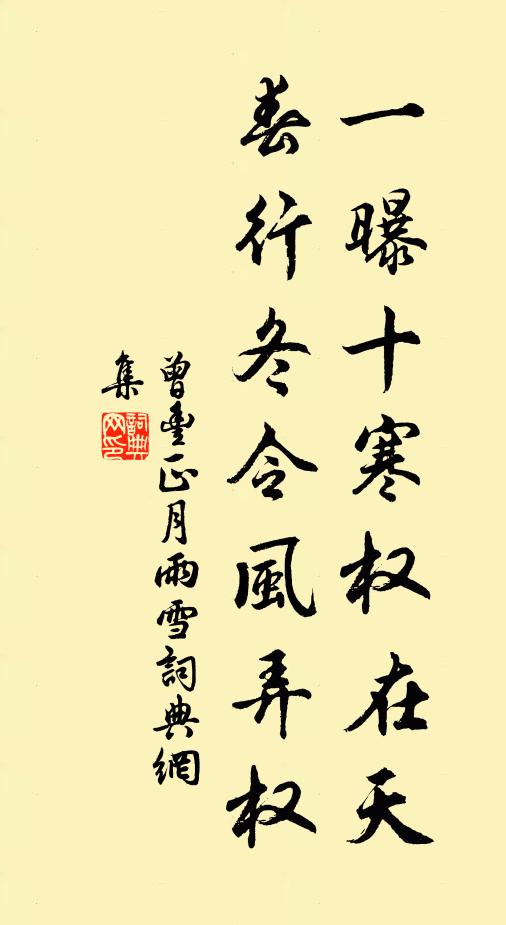 一曝十寒权在天
春行冬令風弄权
曾豐正月雨雪詞典網
集
詞典
网印